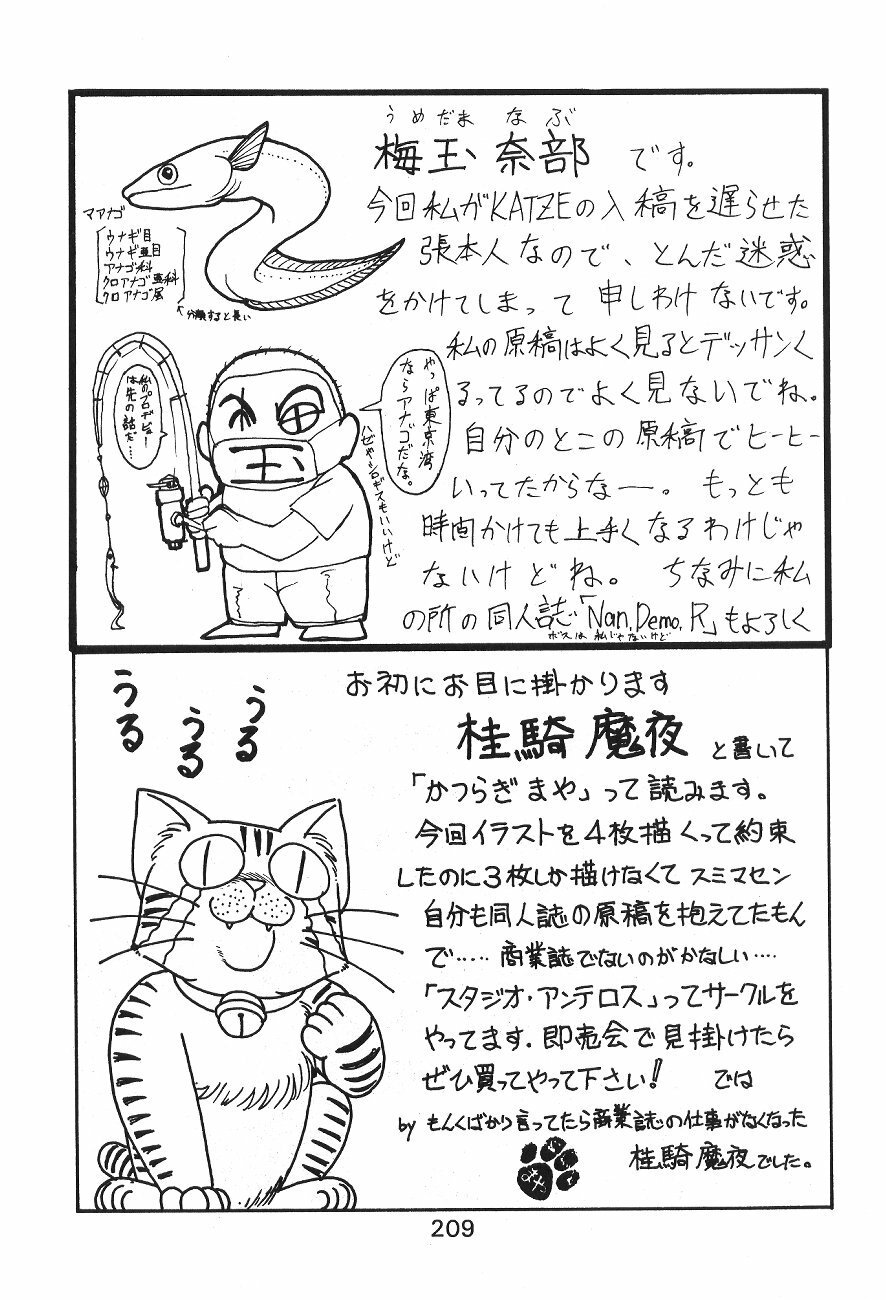 うめだま なぶ
梅玉 奈部 です。
今回私がKATZEの入稿を遅らせた
張本人なので、とんだ迷惑
をかけてしまって申しわけないです。
私の原稿はよく見るとデッサンく
るってるのでよく見ないでね。
自分のとこの原稿でヒーヒー
いってたからなー。もっとも
時間かけても上手くなるわけじゃ
ないけどね。ちなみに私
の所の同人誌「Nan.Demo.R」もよろしく
ボスは私じゃないけど
マアナゴ
ウナギ目
ウナギ亜目
アナゴ科
クロアナゴ亜科
クロアナゴ属
↑分類すると長い
やっぱ東京湾
ならアナゴだな。
ハゼやシロギスもいいけど
私のプロデビュー
は先の話だ…
梅
玉
うる
うる
うる
お初にお目に掛かります
桂騎魔夜 と書いて
「かつらぎまや」って読みます。
今回イラストを4枚描くって約束
したのに3枚しか描けなくてスミマセン
自分も同人誌の原稿を抱えてたもん
で‥‥‥商業誌でないのがかなしい‥‥
「スタジオ・アンテロス」ってサークルを
やってます.即売会で見掛けたら
ぜひ買ってやって下さい! では
by もんくばかり言ってたら商業誌の仕事がなくなった
桂騎魔夜でした。
まや
209